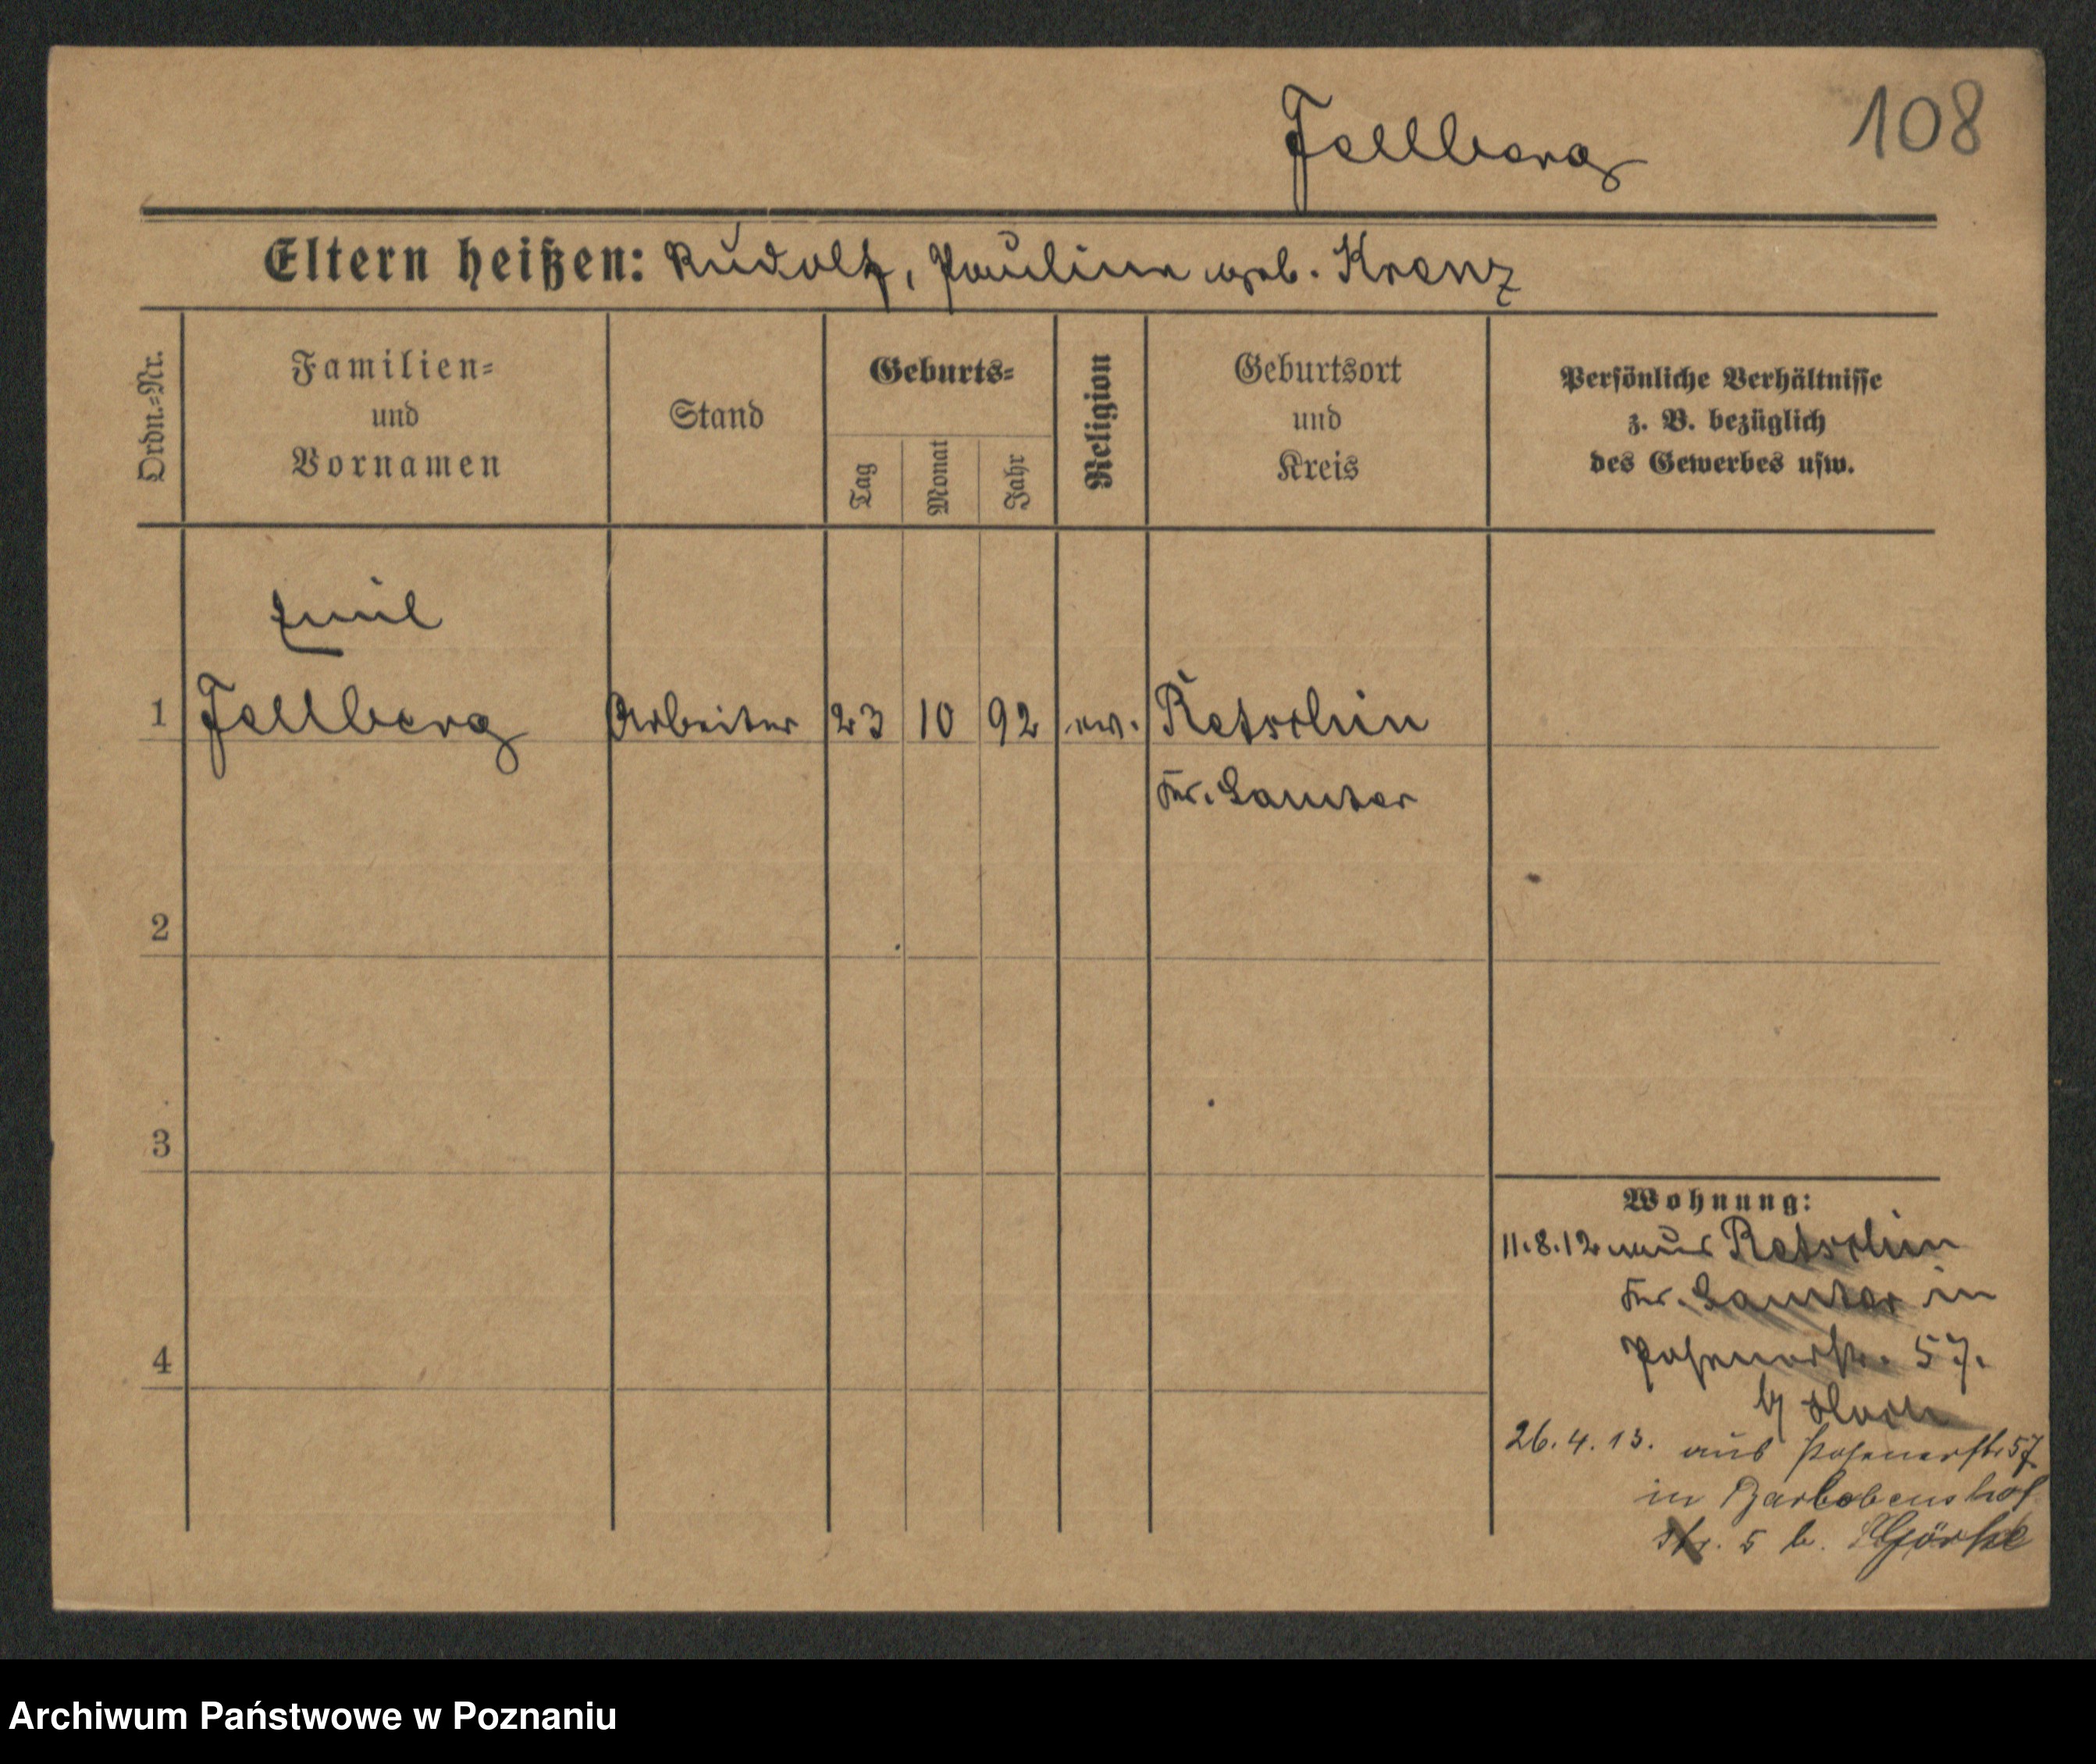 Fellberg 108
Eltern heißen: Rudolf, Pauline geb. Krenz
Ordn.-Nr.
Familien-
und
Vornamen
Stand
Geburts-
Tag
Monat
Jahr
Religion
Geburtsort
und
Kreis
Persönliche Verhältnisse
z. B. bezüglich
des Gewerbes usw.
Emil
1 Fellberg Arbeiter 23 10 92 ev. Retschin
Kr. Samter
2
3
4
Wohnung:
11.8.12 aus Retschin
Kr. Samter in
Posenerstr. 57.
b/
26.4.13. aus Posenerstr 57
in
Str. 5 b. Görke
Archiwum Państwowe w Poznaniu